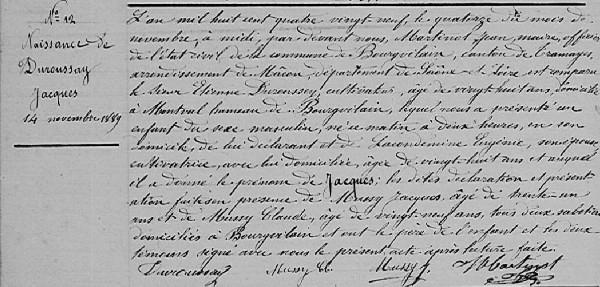 N° 12
Naissance de
Duroussay
Jacques
14 novembre 1889
L'an mil huit cent quatre vingt neuf le quatorze du mois de
novembre, à midi, par devant nous, Martinot Jean, maire, officier
de l'état civil de la commune de Bourgvilain, canton de Tramayes,
arrondissement de Mâcon, département de Saône et Loire est comparu
le sieur Etienne Duroussay, cultivateur, âgé de vingt huit ans, domicilié
à Montval hameau de Bourgvilain, lequel nous a présenté un
enfant du sexe masculin, né ce matin à deux heures, en son
domicile, de lui déclarant et de Lacondemine Eugénie, son épouse
cultivatrice, avec lui domiciliée, âgée de vingt huit ans et auquel
il a donné le prénom de Jacques; les dites déclaration et présent
ation faites en présence de Mussy Jacques, âgé de trente un
ans et de Mussy Claude, âgé de vingt neuf ans, tous deux sabotiers
domiciliés à Bourgvilain et ont le père de l'enfant et les deux
témoins signé avec nous le présent acte après lecture faite.
Duroussay Mussy Cl. Mussy J. Martinot